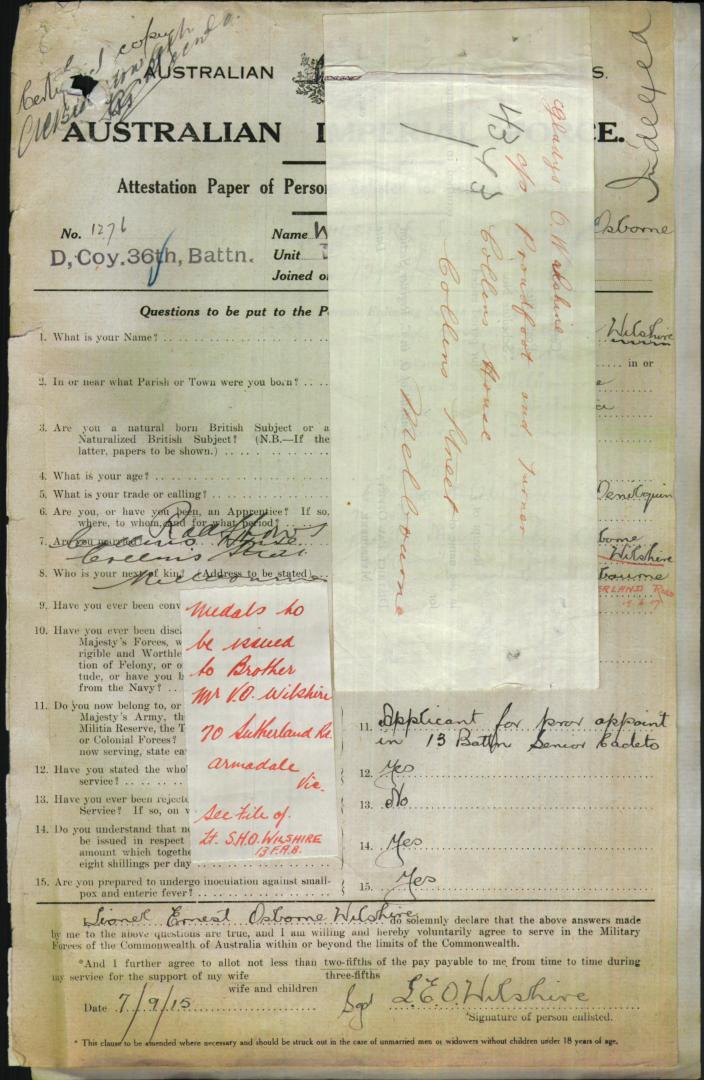 Certified copy
AUSTRALIAN
S.
Indexed
AUSTRALIAN I
CE.
Attestation Paper of Perso
No. 1276
Name W
Osborne
D, Coy. 36th, Battn.
Unit
Joined o
Questions to be put to the Pe
Gladys O. Wilshire
c/o Proudfoot and Turner
4343
Collins House
Collins Street
Melbourne
1. What is your Name?
Wilshire
in or
2. In or near what Parish or Town were you born?
3. Are you a natural born British Subject or a
Naturalized British Subject? (N.B.—If the
latter, papers to be shown.)
4. What is your age?
5. What is your trade or calling?
Deniliquin
6. Are you, or have you been, an Apprentice? If so,
where, to whom, and for what period?
7. Are you married?
Collins House
Collins Street
Melbourne
Wilshire
8. Who is your next of kin? (Address to be stated)
ERLAND ROAD
9. Have you ever been conv
10. Have you ever been disch
Majesty's Forces, w
rigible and Worthle
tion of Felony, or o
tude, or have you b
from the Navy?
Medals to
be issued
to Brother
Mr V.O. Wilshire
70 Sutherland Rd.
Armadale
Vic.
See File of
Lt. S.H.O. WILSHIRE
13 F.A.B.
11. Do you now belong to, or
Majesty's Army, th
Militia Reserve, the T
or Colonial Forces?
now serving, state ca
11. Applicant for prov appoint
in 13 Battn Senior Cadets
12. Have you stated the who
service?
12. Yes
13. Have you ever been rejecte
Service? If so, on w
13. No
14. Do you understand that no
be issued in respect
amount which togethe
eight shillings per day
14. Yes
15. Are you prepared to undergo inoculation against small-
pox and enteric fever?
15. Yes
Lionel Ernest Osborne Wilshire do solemnly declare that the above answers made
by me to the above questions are true, and I am willing and hereby voluntarily agree to serve in the Military
Forces of the Commonwealth of Australia within or beyond the limits of the Commonwealth.
*And I further agree to allot not less than two-fifths of the pay payable to me from time to time during
three-fifths
my service for the support of my wife
wife and children
Date 7/9/15
Sgd L.E.O. Wilshire
*Signature of person enlisted.
* This clause to be amended where necessary and should be struck out in the case of unmarried men or widowers without children under 18 years of age.